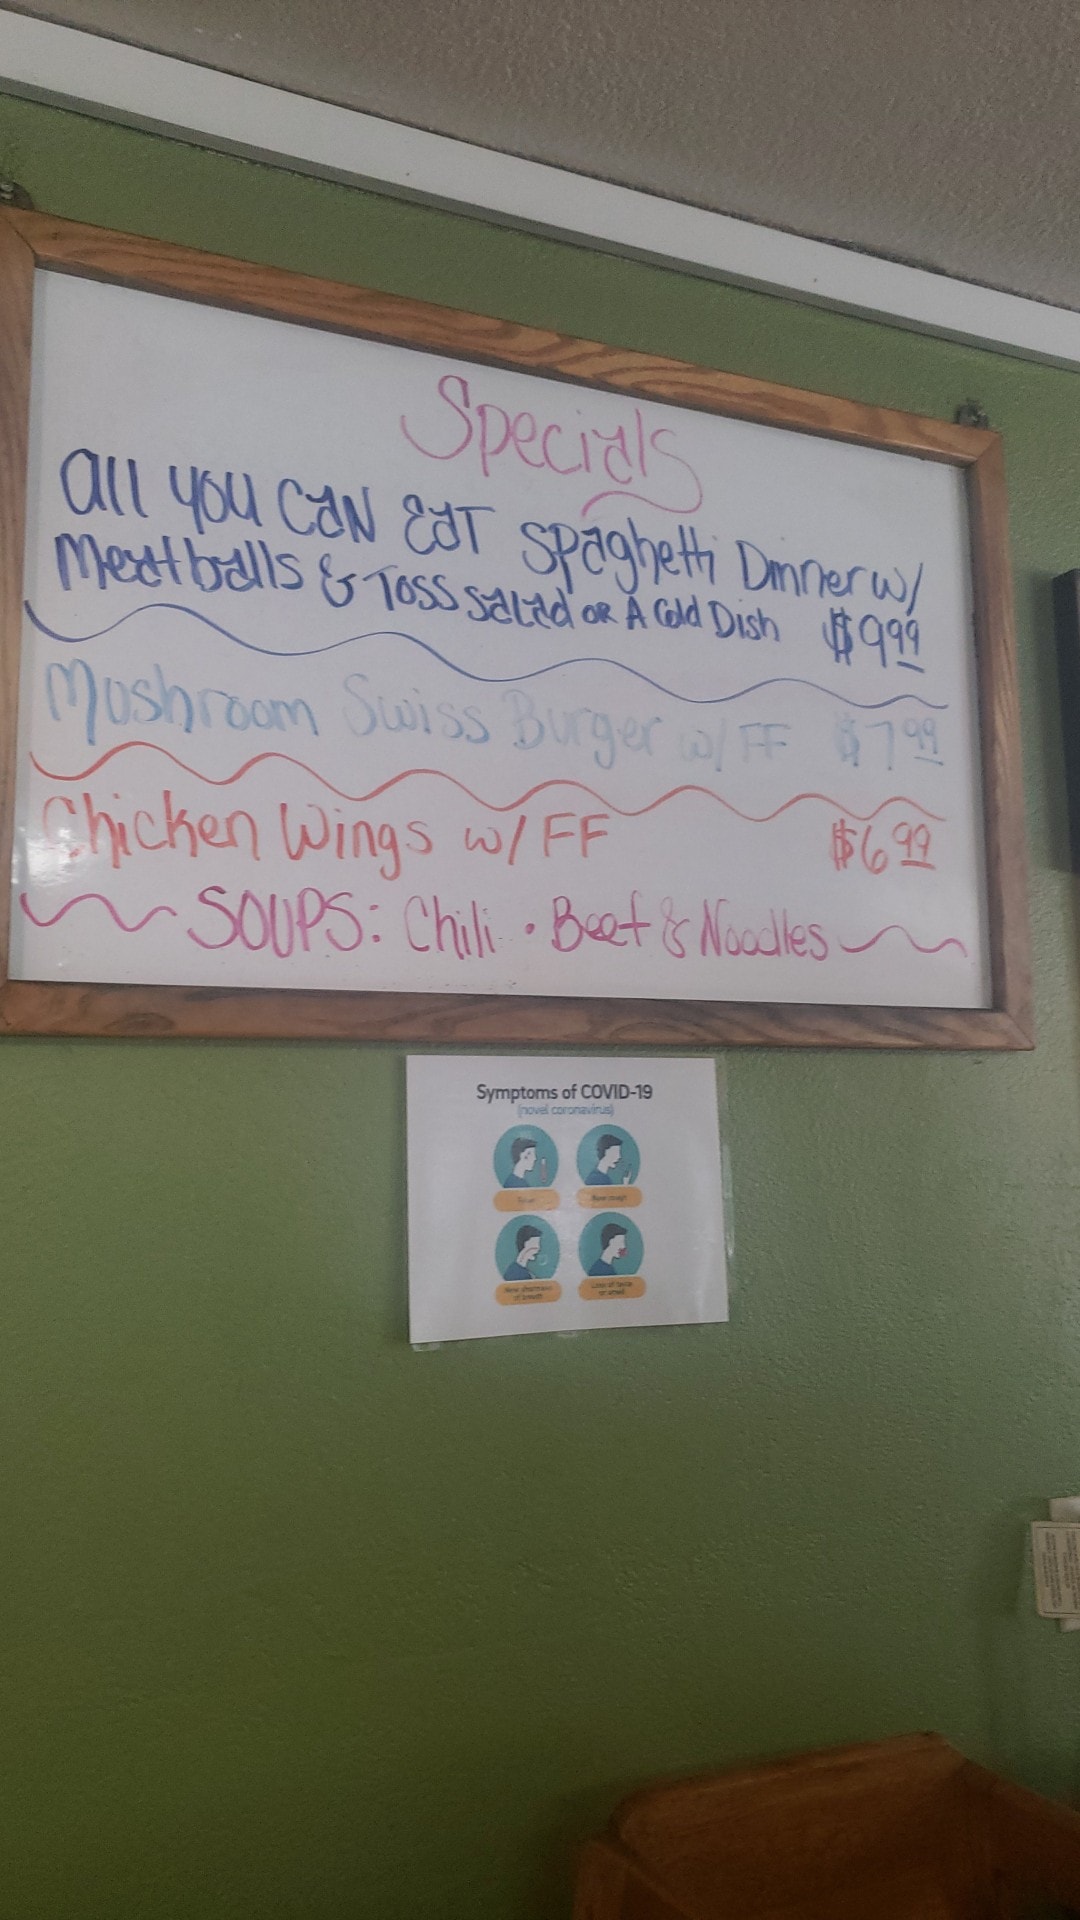 Specials
All you CAN EAT Spaghetti Dinner w/
Meatballs & Toss Salad OR A Cold Dish $9.99
Mushroom Swiss Burger w/ FF $7.99
Chicken Wings w/ FF $6.99
SOUPS: Chili • Beef & Noodles
Symptoms of COVID-19
(novel coronavirus)
Fever New cough
New shortness Loss of taste
of breath or smell